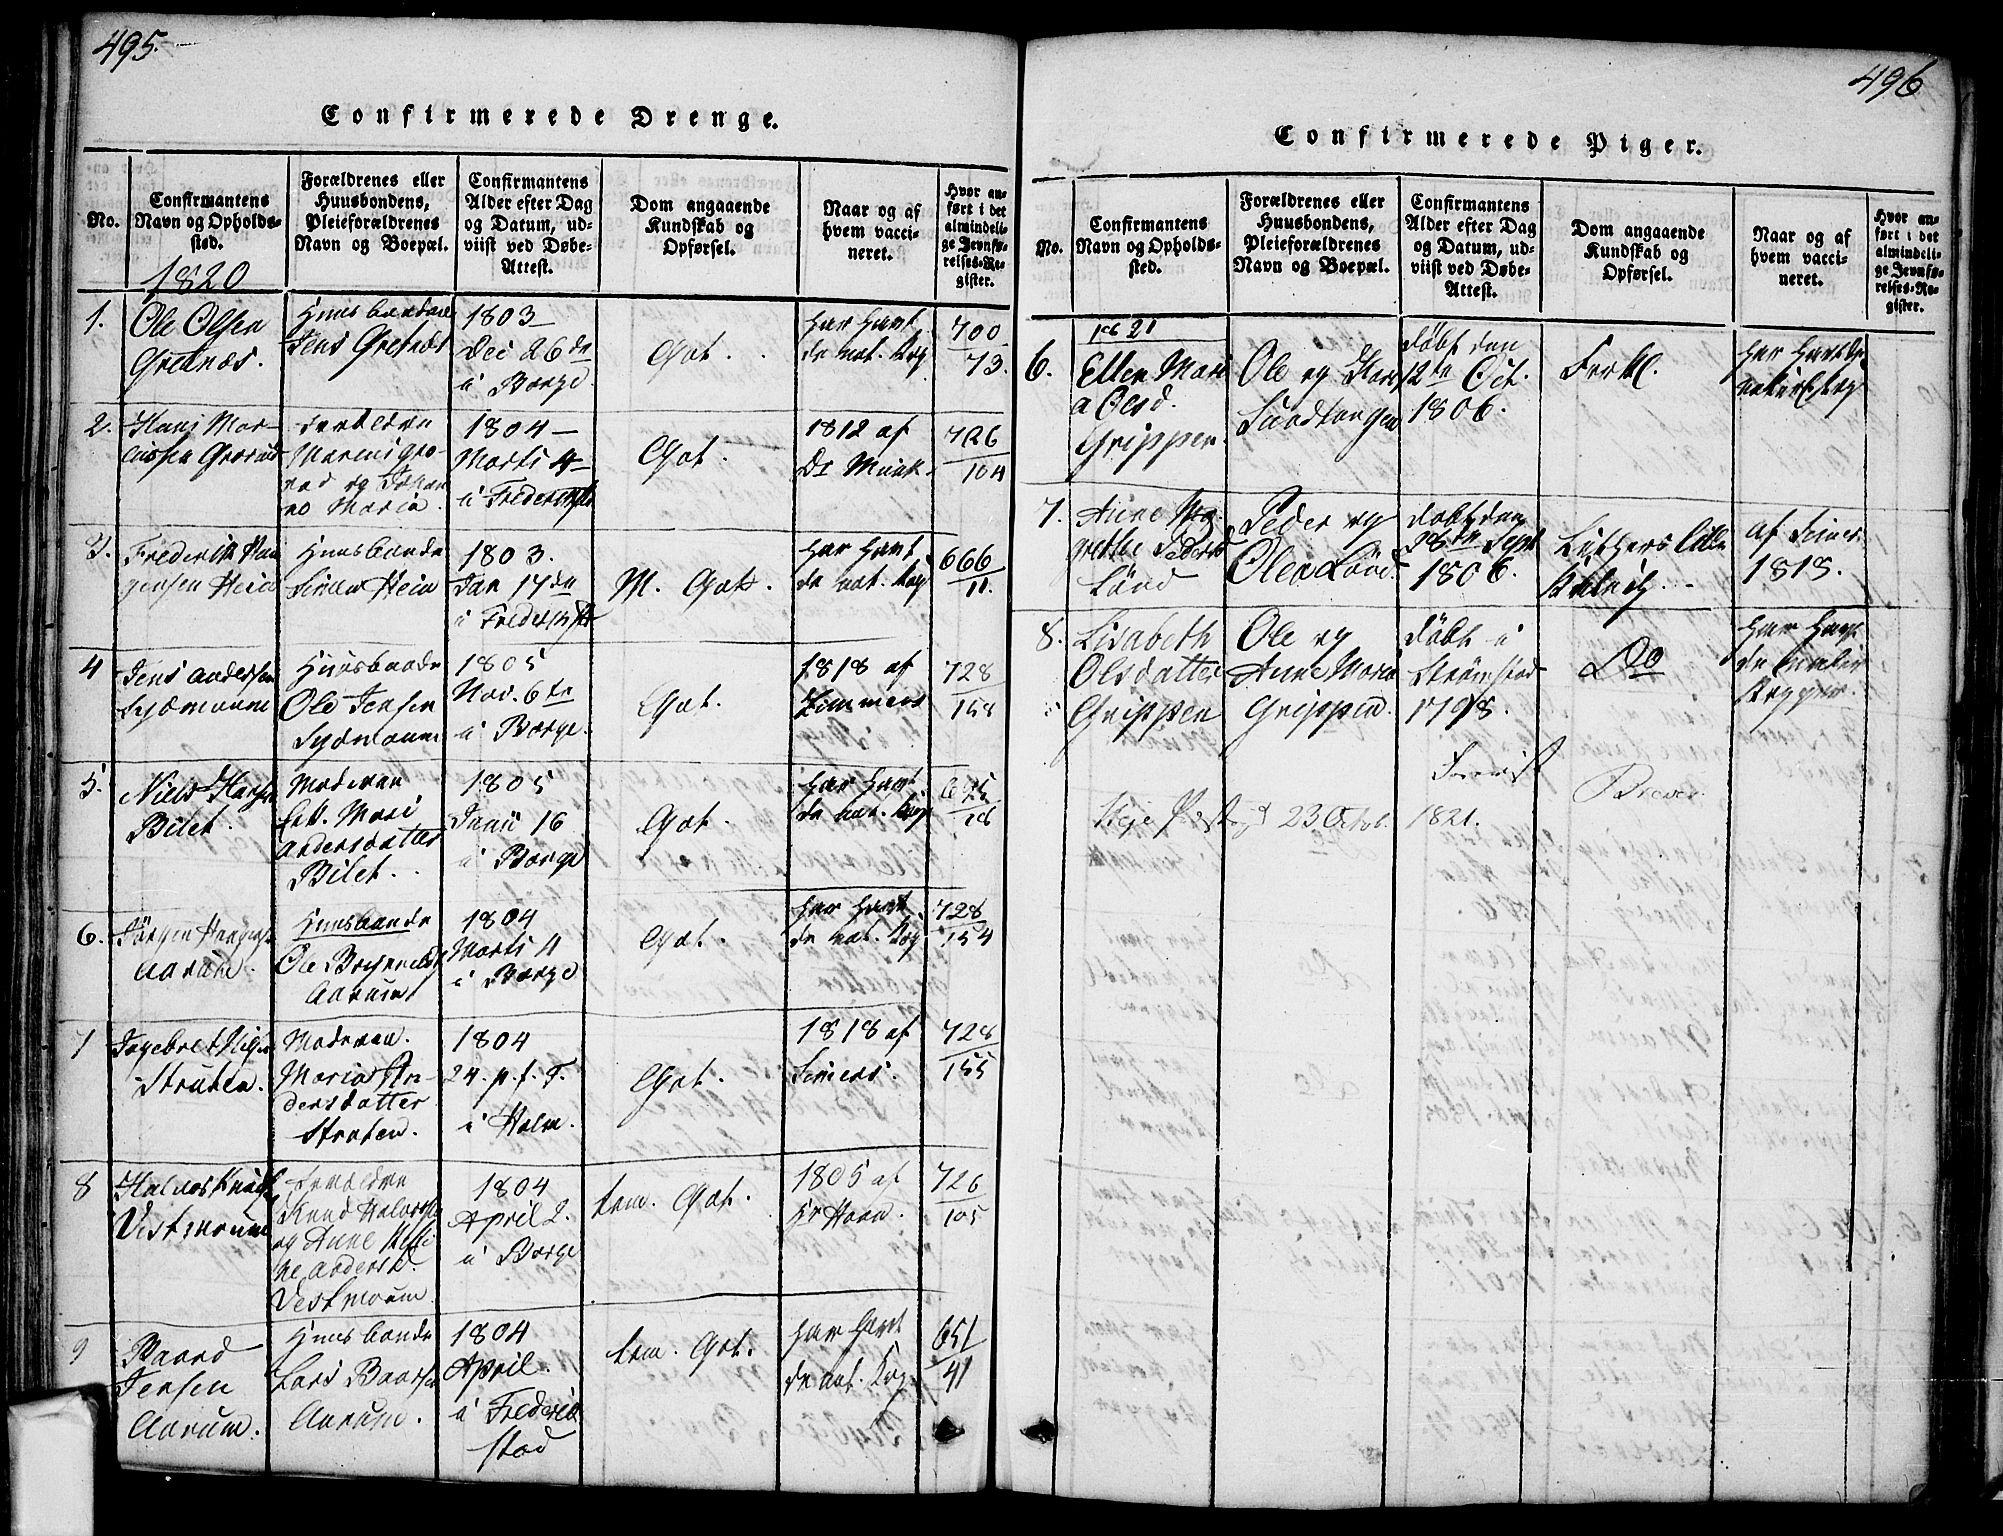 495.
Confirmerede Drenge.
No.
Confirmantens
Navn og Opholds-
sted.
Forældrenes eller
Huusbondens,
Pleieforældrenes
Navn og Boepæl.
Confirmantens
Alder efter Dag
og Datum, ud-
viist ved Døbe-
Attest.
Dom angaaende
Kundskab og
Opførsel.
Naar og af
hvem vacci-
neret.
Hvor an-
ført i det
almindeli-
ge Jevnfø-
relses-Re-
gister.
1820
1.
Ole Olsen
Grelnæs.
Huusbonden
Jens Grelnæs
1803
Dec 26de
i Borge.
Got.
har havt
de nat. Kop
700
73.
2.
Hans Mor-
Forældrene
1804
Marti 4
i Frederikst
Got.
1812 af
Dr Munk.
726
104
3.
Frederik
Huusbonde
Simen Heie
1803.
Jan 17de
i Frederikst
M. Got.
har havt
de nat. Kop
666
11.
4
Jens Andersen
Sydmoum
Huusbonde
Ole Jensen
Sydmoum
1805
Nov. 6te
i Borge.
Got.
1818 af
Simmers
728
158
5.
Niels Hansen
Bilet.
Moderen
Mari
Andersdatter
Bilet.
1805
Juni 16
i Borge
Got.
har havt
de nat. Kop
695
6.
Jørgen
Aarum.
Huusbonde
Ole
Aarum.
1804
Marti 11
i Borge
Got.
har havt
de nat. Kop
728
154
7
Ingebret
Struten.
Moderen.
Maria An-
dersdatter
Struten.
1804
24. p. f. T.
i Holm.
Got.
1818 af
Simers.
728
155
8
Halvor
Vestmoum
Forældre
Knud Halvorsen
og Anne
Anders
Vestmoum
1804
April 2.
i Borge
tem. Got.
1805 af
Hr Horn.
726
105
9
Baard
Jensen
Aarum.
Huusbonde
Lars
Aarum.
1804
April.
i Frederik
stad
tem. Got.
har havt
de nat. Kop.
651
41
496
Confirmerede Piger.
No.
Confirmantens
Navn og Opholds-
sted.
Forældrenes eller
Huusbondens,
Pleieforældrenes
Navn og Boepæl.
Confirmantens
Alder efter Dag
og Datum, ud-
viist ved Døbe-
Attest.
Dom angaaende
Kundskab og
Opførsel.
Naar og af
hvem vacci-
neret.
Hvor an-
ført i det
almindeli-
ge Jevnfø-
relses-Re-
gister.
6.
Ellen Mari
a Olsd.
Grippen.
Ole og Kari
Sundtangen
døbt den
12te Oct.
1806.
Forkl.
har havt de
7.
Anne Mar-
grethe Pedersd
Lund
Peder og
Olea Lund.
døbt den
28de Sept
1806.
Luthers Lille
af Simer
1818.
8.
Lisabeth
Olsdatter
Grippen
Ole og
Anne Maria
Grippen.
døbt i
Strømstad
1798.
Do
har havt
de
Kopper.
23 Octob. 1821.